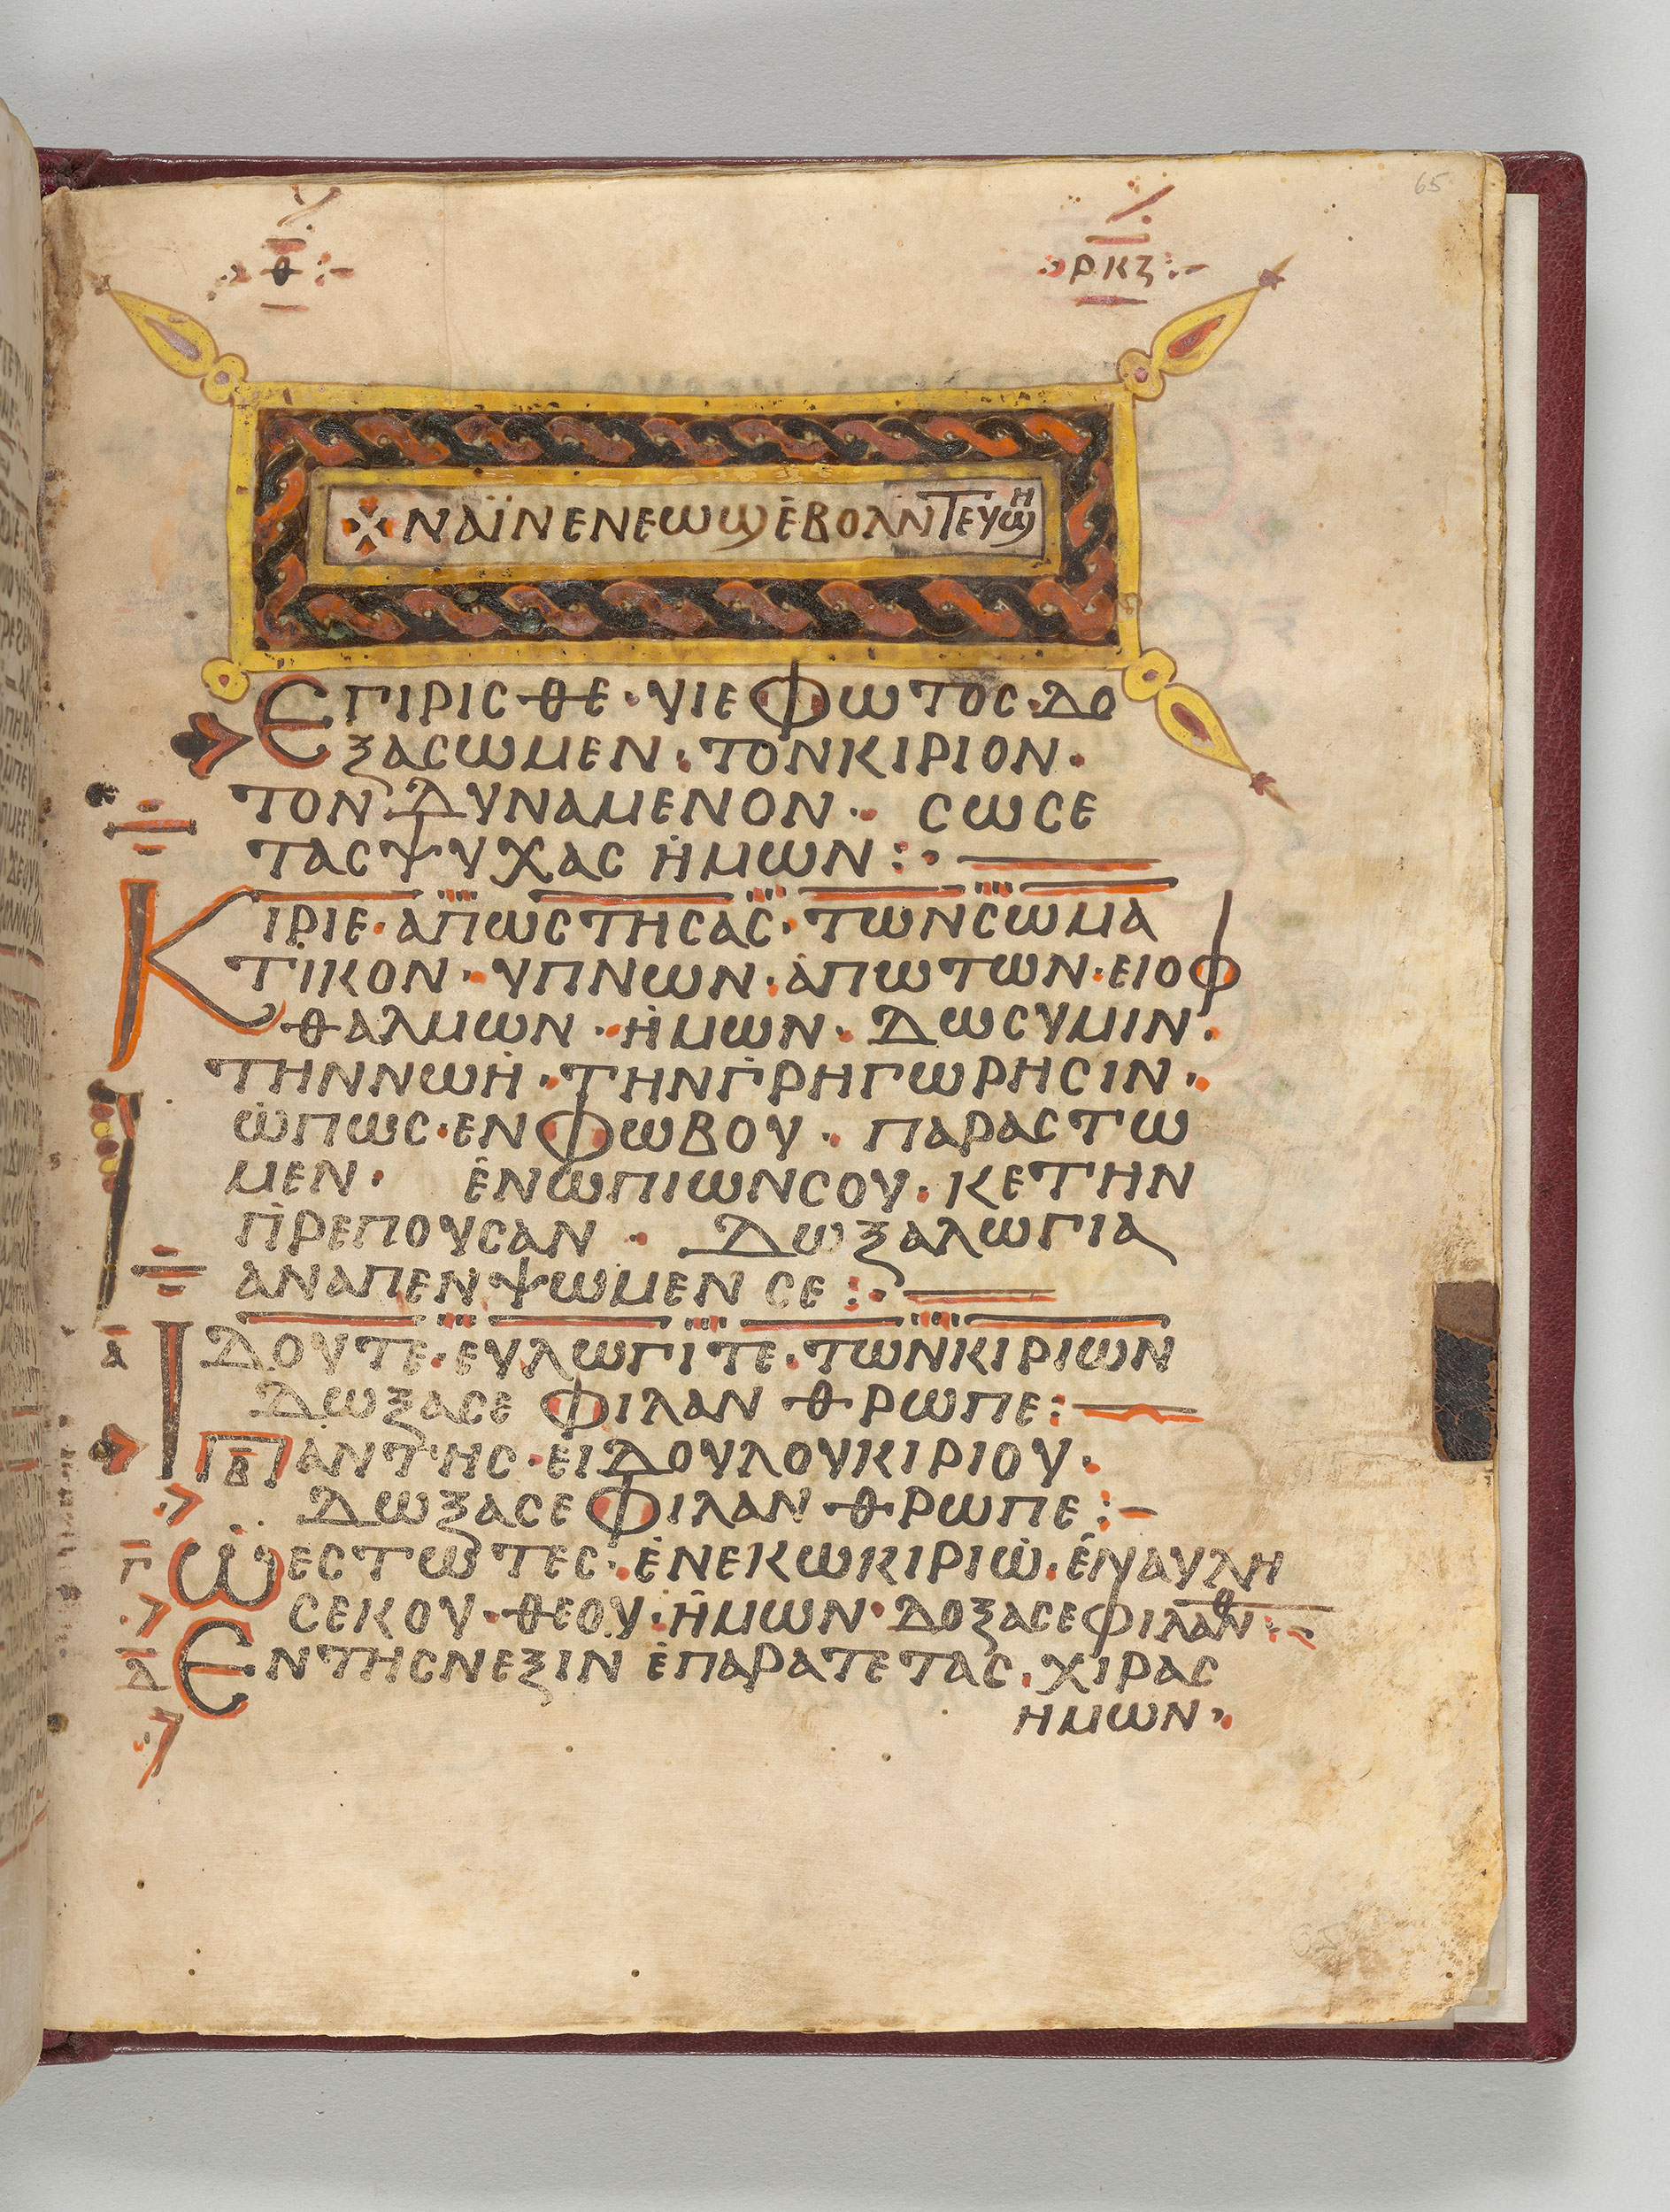 65
ⲑ
ⲣⲕⲍ
ⲛⲁⲓ̈ⲛⲉⲛⲉⲱϣⲉ̇ⲃⲟⲗⲛⲧⲉⲩϣⲏ
ⲉⲡⲓⲣⲓⲥⲑⲉ·ⲩⲓⲉⲫⲱⲧⲟⲥ·ⲇⲟ
ⲝⲁⲥⲱⲙⲉⲛ·ⲧⲟⲛⲕⲓⲣⲓⲟⲛ·
ⲧⲟⲛ·ⲇⲩⲛⲁⲙⲉⲛⲟⲛ· ⲥⲱⲥⲉ
ⲧⲁⲥⲯⲩⲭⲁⲥ ⲏ̇ⲙⲱⲛ:·
ⲕⲓⲣⲓⲉ·ⲁⲡⲱⲥⲧⲏⲥⲁⲥ·ⲧⲱⲛⲥⲱⲙⲁ
ⲧⲓⲕⲟⲛ·ⲩⲡⲛⲱⲛ·ⲁ̇ⲡⲱⲧⲱⲛ·ⲉⲓⲟⲫ
ⲑⲁⲗⲙⲱⲛ·ⲏ̇ⲙⲱⲛ·ⲇⲱⲥⲩⲙⲓⲛ·
ⲧⲏⲛⲛⲱⲏ̇·ⲧⲏⲛⲅ̇ⲣⲏⲅⲱⲣⲏⲥⲓⲛ·
ⲱ̇ⲡⲱⲥ·ⲉⲛⲫⲱⲃⲟⲩ·ⲡⲁⲣⲁⲥⲧⲱ
ⲙⲉⲛ· ⲉ̇ⲛⲱⲡⲓⲱⲛⲥⲟⲩ·ⲕⲉⲧⲏⲛ
ⲡ̇ⲣⲉⲡⲟⲩⲥⲁⲛ · ⲇⲱⲝⲁⲗⲱⲅⲓⲁ
ⲁⲛⲁⲡⲉⲛⲯⲱⲙⲉⲛ ⲥⲉ:·
ⲁ ⲓⲇⲟⲩⲧⲉ·ⲉⲩⲗⲱⲅⲓⲧⲉ·ⲧⲱⲛⲕⲓⲣⲓⲱⲛ
ⲇⲱⲝⲁⲥⲉ ⲫⲓⲗⲁⲛⲑⲣⲱⲡⲉ:
ⲃ ⲡⲁⲛⲧⲏⲥ·ⲉ̇ⲓⲇⲟⲩⲗⲟⲩⲕⲓⲣⲓⲟⲩ·
ⲇⲱⲝⲁⲥⲉⲫⲓⲗⲁⲛⲑⲣⲱⲡⲉ:
ⲅ ⲱⲉⲥⲧⲱⲧⲉⲥ·ⲉ̇ⲛⲉⲕⲱⲕⲓⲣⲓⲱ̇·ⲉ̇ⲛⲁⲩⲗⲏ
ⲥⲉⲕⲟⲩ·ⲑⲉⲟⲩ·ⲏ̇ⲙⲱⲛ·ⲇⲟⲝⲁⲥⲉⲫⲓⲗⲁⲛⲑ
ⲇ ⲉⲛⲧⲏⲥⲛⲉⲝⲓⲛ ⲉ̇ⲡⲁⲣⲁⲧⲉⲧⲁⲥ·ⲭⲓⲣⲁⲥ
ⲏⲙⲱⲛ·